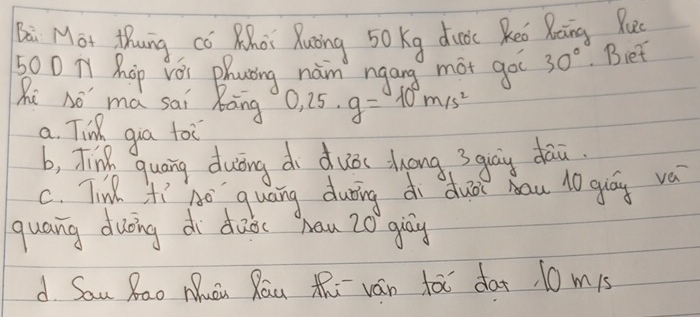 Bài Một thùng có khối lượng 50 Kg được kéo bằng lực
500 N hợp với phương nằm ngang một góc 30°. Biết
hệ số ma sát bằng 0,25. g = 10 m/s²
a. Tính gia tốc
b, Tính quãng đường đi được trong 3 giây đầu.
c. Tính tỉ số quãng đường đi được sau 10 giây và
quãng đường đi được sau 20 giây
d. Sau bao nhiêu lâu thì vận tốc đạt 10 m/s